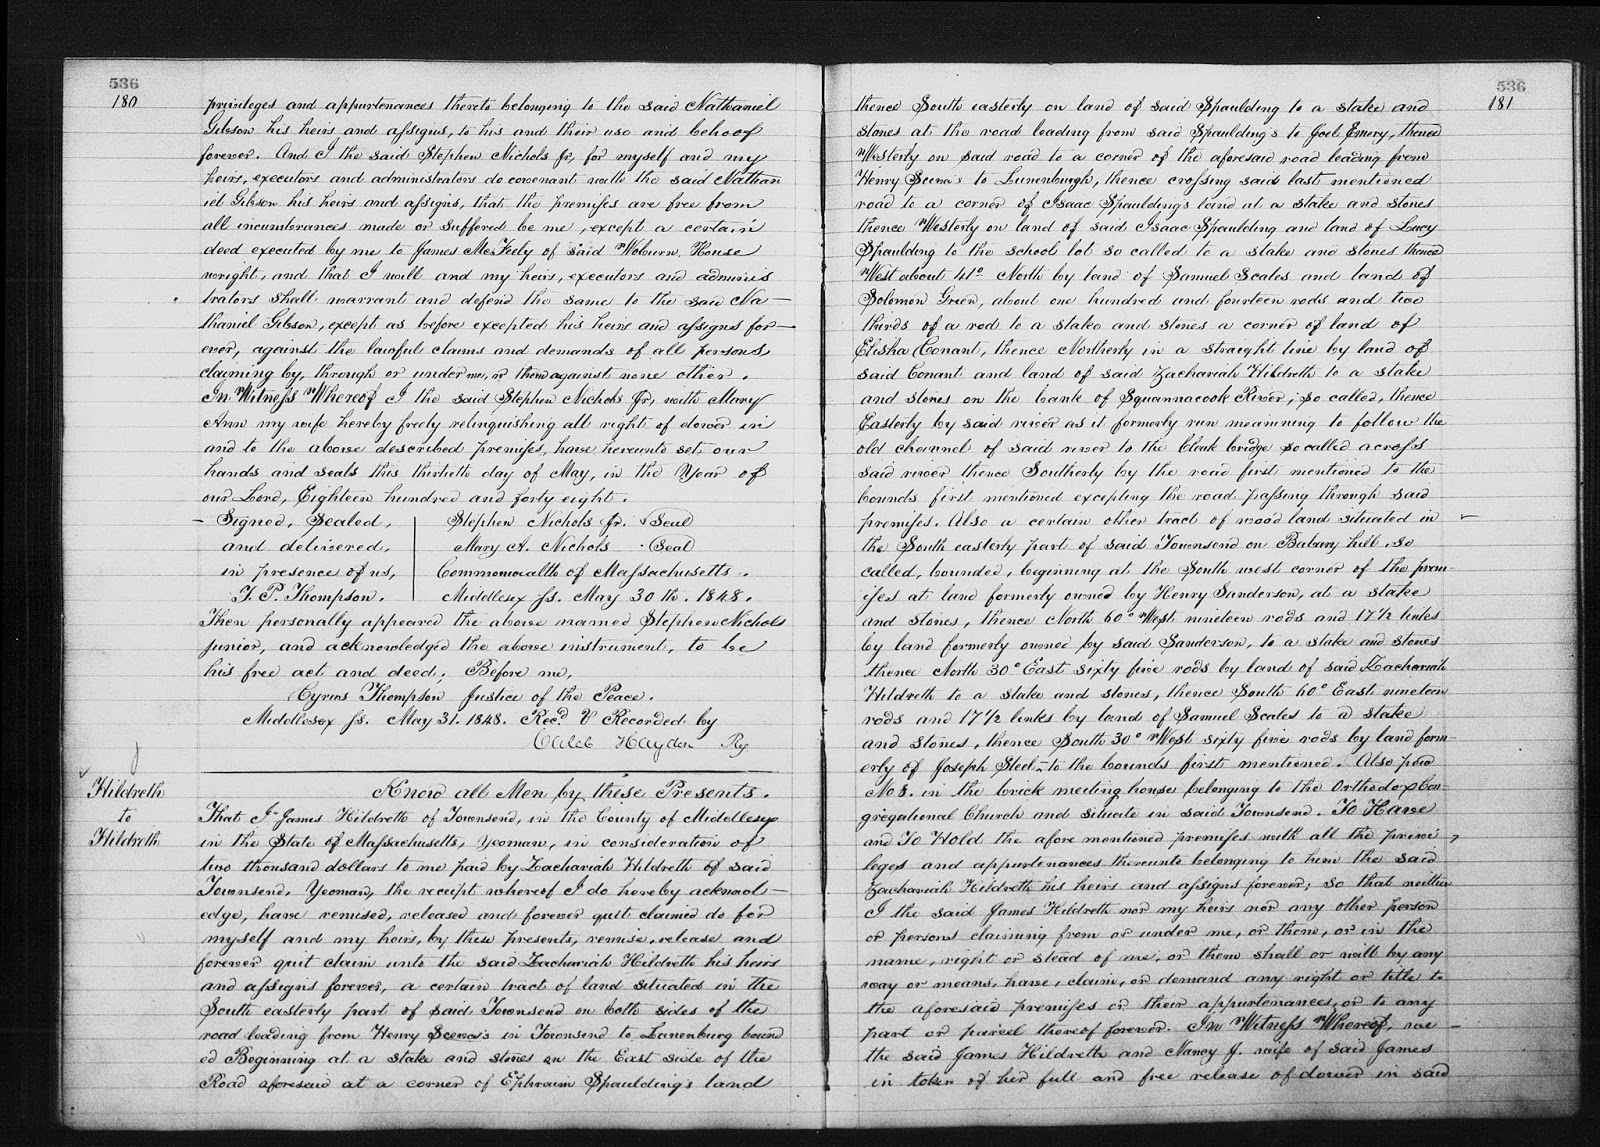 536
180
privileges and appurtenances thereto belonging to the said Nathaniel
Gibson his heirs and assigns, to his and their use and behoof
forever. And I the said Stephen Nichols Jr, for myself and my
heirs, executors and administrators do covenant with the said Nathan
iel Gibson his heirs and assigns, that the premises are free from
all incumbrances made or suffered be me, except a certain
deed executed by me to James McFeely of said Woburn, House
wright, and that I will and my heirs, executors and adminis
trators shall warrant and defend the same to the said Na-
thaniel Gibson, except as before excepted his heirs and assigns for-
ever, against the lawful claims and demands of all persons
claiming by, through or under me, or them against none other.
In Witness Whereof I the said Stephen Nichols Jr, with Mary
Ann my wife hereby freely relinquishing all right of dower in
and to the above described premises, have hereunto set our
hands and seals this thirtieth day of May, in the Year of
our Lord, Eighteen hundred and forty eight.
Signed, Sealed, Stephen Nichols Jr. Seal
and delivered, Mary A. Nichols Seal
in presence of us, Commonwealth of Massachusetts.
T. P. Thompson. Middlesex ss. May 30th. 1848.
Then personally appeared the above named Stephen Nichols
junior, and acknowledged the above instrument, to be
his free act and deed, Before me,
Cyrus Thompson Justice of the Peace.
Middlesex ss. May 31. 1848. Recd & Recorded by
Caleb Hayden Rg.
Hildreth
to
Hildreth
Know all Men by these Presents.
That I James Hildreth of Townsend, in the County of Middlesex
in the State of Massachusetts, Yeoman, in consideration of
two thousand dollars to me paid by Zachariah Hildreth of said
Townsend, Yeoman, the receipt whereof I do hereby acknowl-
edge, have remised, released and forever quit claimed do for
myself and my heirs, by these presents, remise, release and
forever quit claim unto the said Zachariah Hildreth his heirs
and assigns forever, a certain tract of land situated in the
South easterly part of said Townsend on both sides of the
road leading from Henry in Townsend to Lunenburg bound
ed Beginning at a stake and stones on the East side of the
Road aforesaid at a corner of Ephraim Spaulding's land
536
181
thence South easterly on land of said Spaulding to a stake and
stones at the road leading from said Spaulding's to Joel Emery, thence
Westerly on said road to a corner of the aforesaid road leading from
Henry to Lunenburgh, thence crossing said last mentioned
road to a corner of Isaac Spaulding's land at a stake and stones
thence Westerly on land of said Isaac Spaulding and land of Lucy
Spaulding to the school lot so called to a stake and stones thence
West about 41° North by land of Samuel Scales and land of
Solomon Green, about one hundred and fourteen rods and two
thirds of a rod to a stake and stones a corner of land of
Elisha Conant, thence Northerly in a straight line by land of
said Conant and land of said Zachariah Hildreth to a stake
and stones on the bank of Squannacook River, so called, thence
Easterly by said river as it formerly run meaning to follow the
old channel of said river to the bridge so called across
said river thence Southerly by the road first mentioned to the
bounds first mentioned excepting the road passing through said
premises. Also a certain other tract of wood land situated in
the South easterly part of said Townsend on hill, so
called, bounded, beginning at the South west corner of the prem-
ises at land formerly owned by Henry Sanderson, at a stake
and stones, thence North 60° West nineteen rods and 17½ links
by land formerly owned by said Sanderson, to a stake and stones
thence North 30° East sixty five rods by land of said Zachariah
Hildreth to a stake and stones, thence South 60° East nineteen
rods and 17½ links by land of Samuel Scales to a stake
and stones, thence South 30° West sixty five rods by land form-
erly of Joseph Steel to the bounds first mentioned. Also pew
No 8. in the brick meeting house belonging to the Orthodox Con-
gregational Church and situate in said Townsend. To Have
and To Hold the afore mentioned premises with all the privi
leges and appurtenances thereunto belonging to him the said
Zachariah Hildreth his heirs and assigns forever; so that neither
I the said James Hildreth nor my heirs nor any other person
or persons claiming from or under me, or them, or in the
name, right or stead of me, or them shall or will by any
way or means, have, claim, or demand any right or title to
the aforesaid premises or their appurtenances, or to any
part or parcel thereof forever. In Witness Whereof, we
the said James Hildreth and Nancy J. wife of said James
in token of her full and free release of dower in said